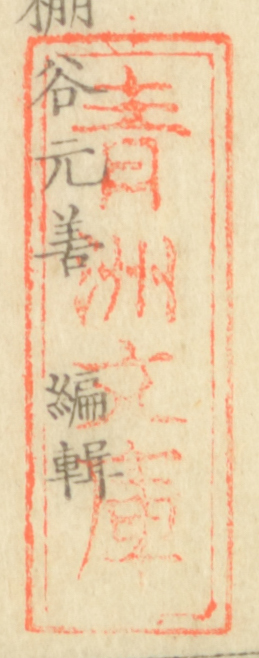 棚谷元善 編輯
青洲文庫